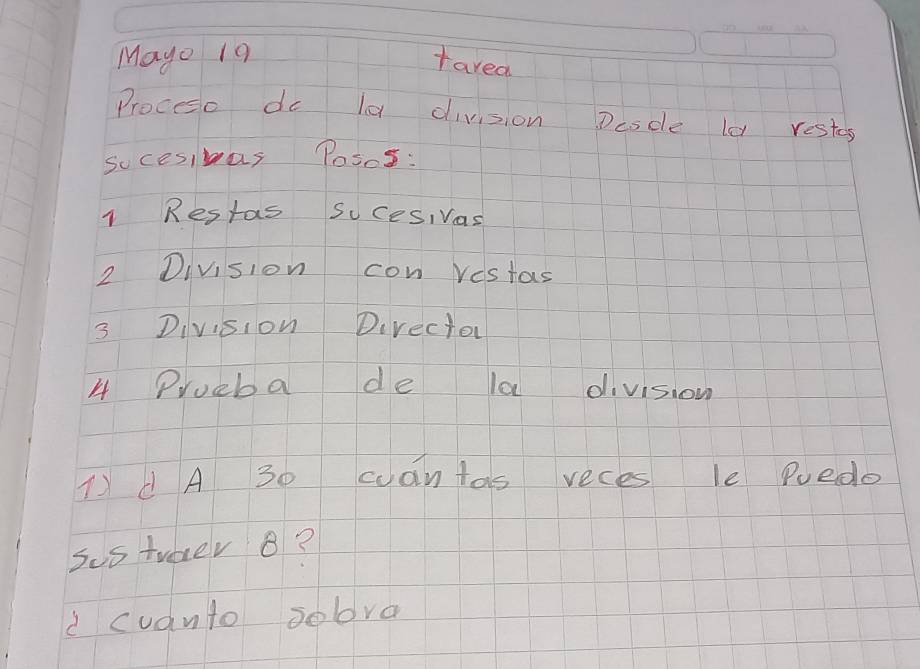 Mayo 19 tarea
Proceso de la division Desde la restas
sucesivas Pasos:
1 Restas sucesivas
2 Division con restas
3 Division Directa
4 Prueba de la division
1) ¿ A 30 cuántas veces le Puedo
sustraer 8?
¿ cuanto sobra